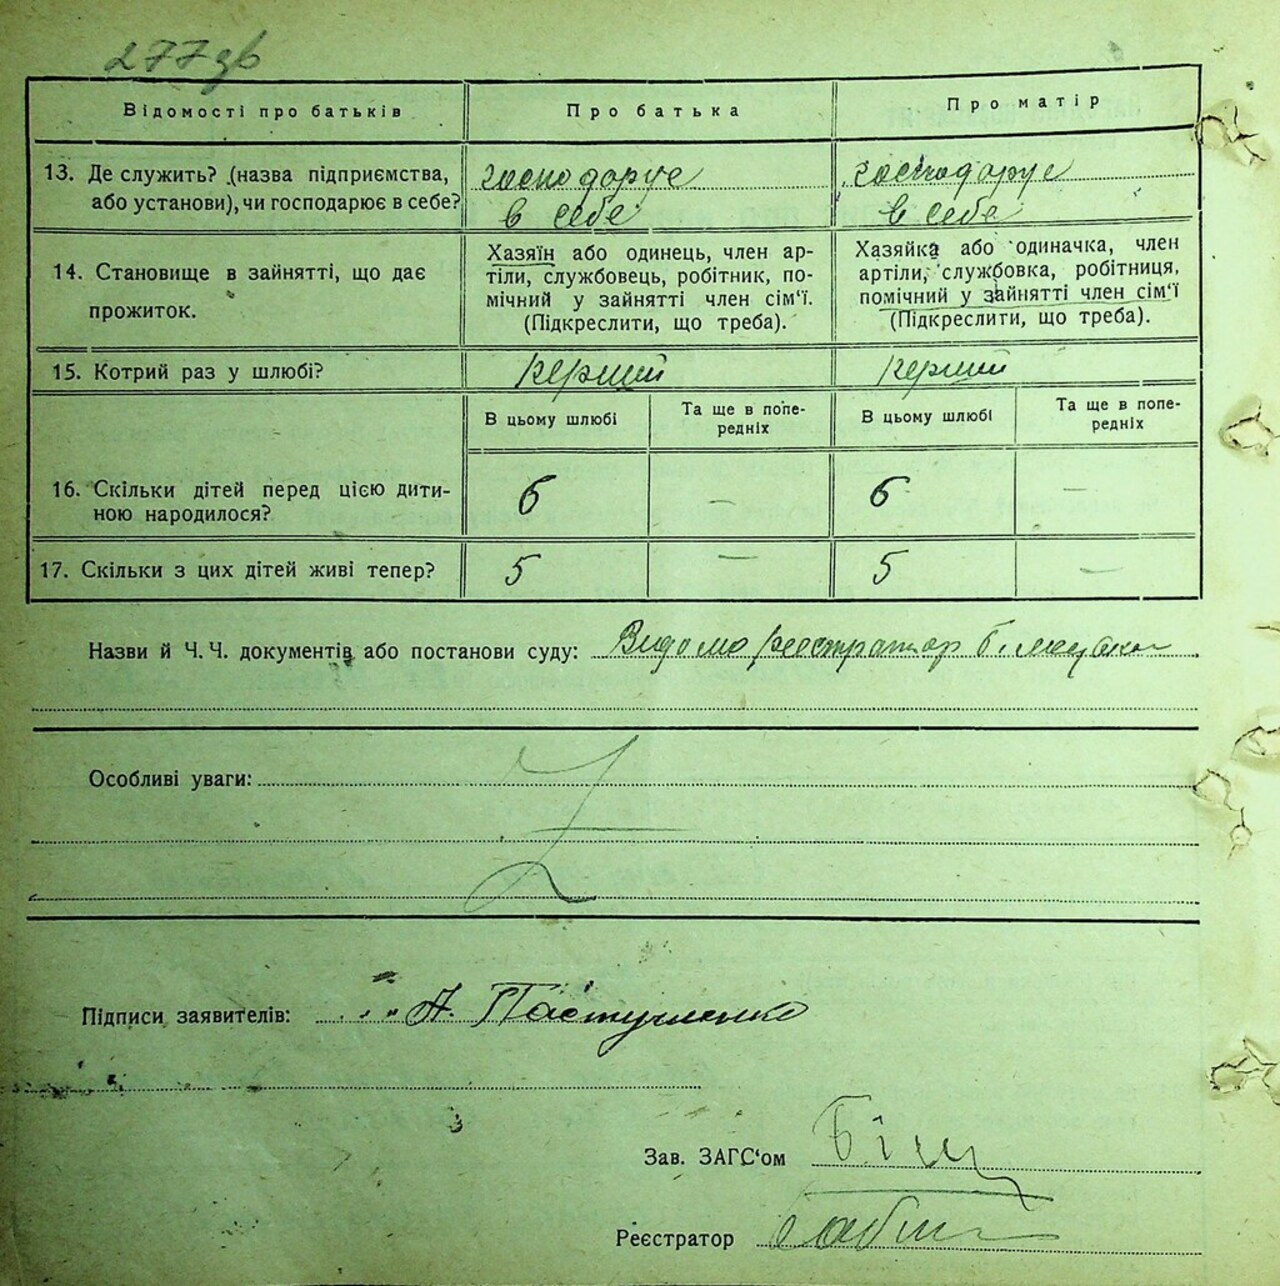 277зв
Відомості про батьків
Про батька
Про матір
13. Де служить? (назва підприємства,
або установи), чи господарює в себе?
господарує
в себе
господарує
в себе
14. Становище в зайнятті, що дає
прожиток.
Хазяїн або одинець, член ар-
тіли, службовець, робітник, по-
мічний у зайнятті член сім‘ї.
(Підкреслити, що треба).
Хазяйка або одиначка, член
артіли, службовка, робітниця,
помічний у зайнятті член сім‘ї
(Підкреслити, що треба).
15. Котрий раз у шлюбі?
перший
перший
В цьому шлюбі
Та ще в попе-
редніх
В цьому шлюбі
Та ще в попе-
редніх
16. Скільки дітей перед цією дити-
ною народилося?
6
—
6
—
17. Скільки з цих дітей живі тепер?
5
—
5
—
Назви й Ч. Ч. документів або постанови суду: Видомо реєстратор
Особливі уваги:
Z
Підписи заявителів: А. Пастушенко
Зав. ЗАГС‘ом
Реєстратор